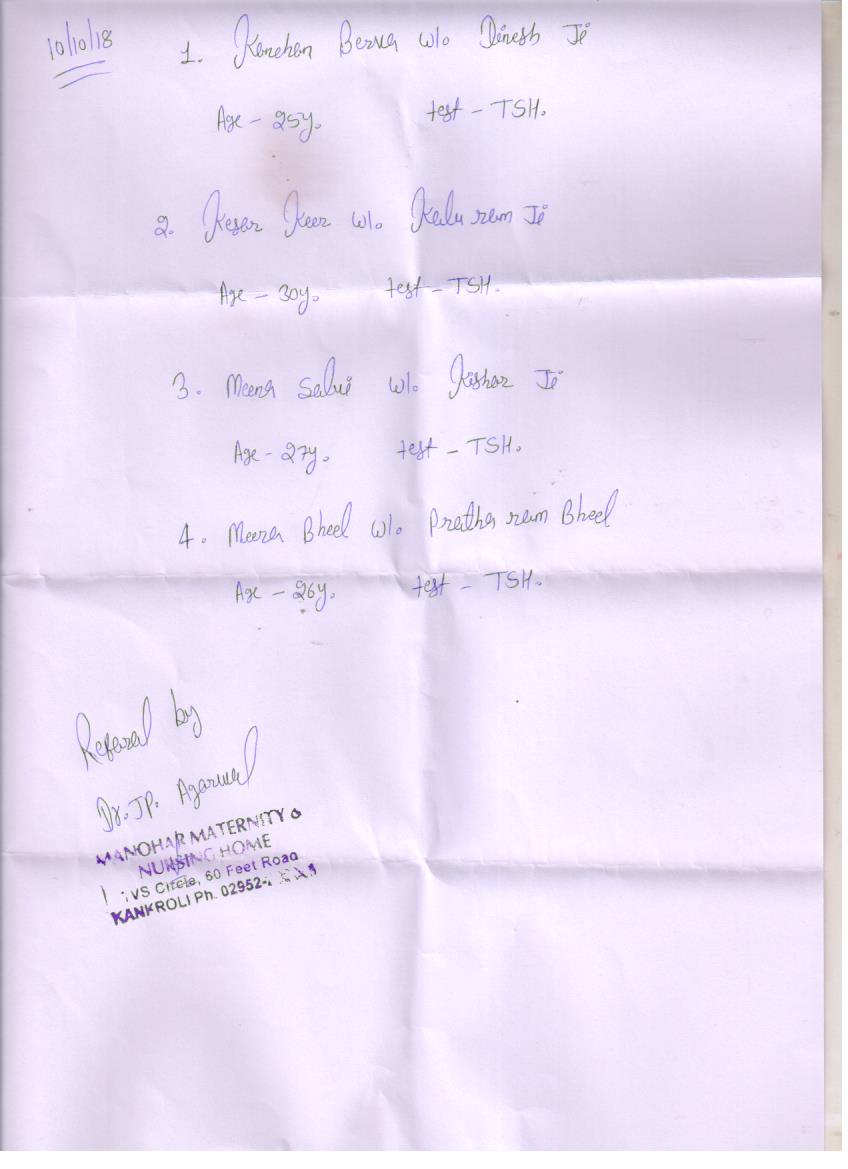 10/10/18
1. Kanchan Berwa w/o Dinesh Ji
Age - 25y. test - TSH.
2. Kesar Keer w/o Kalu ram Ji
Age - 30y. test - TSH.
3. Meena Salvi w/o Kishor Ji
Age - 27y. test - TSH.
4. Meera Bheel w/o Pratha ram Bheel
Age - 26y. test - TSH.
Referal by
Dr. JP. Agarwal
MANOHAR MATERNITY &
NURSING HOME
VS Circle, 60 Feet Road
KANKROLI Ph. 02952-